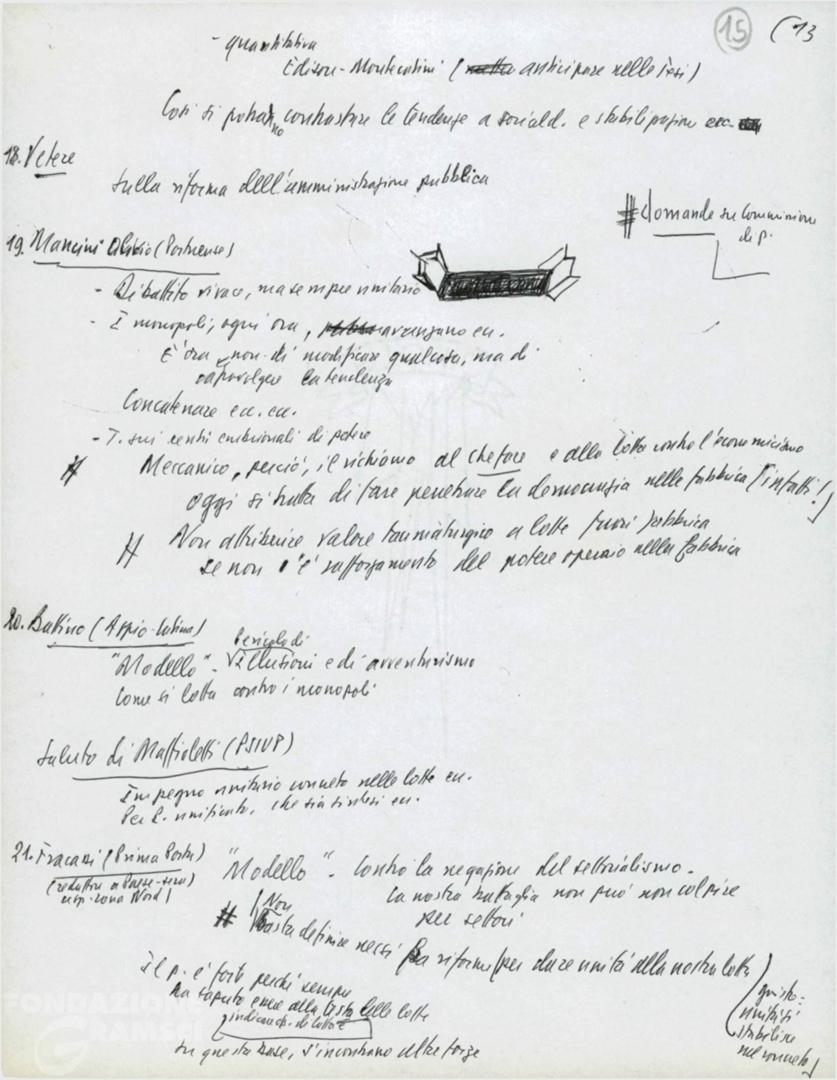 15 (13
- quantitativa
Edison-Montecatini ( anticipare nelle Tesi)
Così si potranno contrastare le tendenze a sociald. e stabilizzazione ecc.
18. Vetere
Sulla riforma dell'amministrazione pubblica
# domande su Commissione
di p.
19. Mancini Olivio (Portuense)
- Dibattito vivace, ma sempre unitario
- I monopoli, ogni ora, avanzano ecc.
È ora non di modificare qualcosa, ma di
capovolgere la tendenza
Concatenare ecc. ecc.
- T. sui centri embrionali di potere
# Meccanico, perciò, il richiamo al che fare e alla lotta contro l'economicismo
oggi si tratta di fare penetrare la democrazia nelle fabbrica [infatti!]
# Non attribuire valore taumaturgico a lotte fuori fabbrica
se non c'è rafforzamento del potere operaio nella fabbrica
20. (Appio-Latino)
"Modello" - Pericolo di illusioni e di avventurismo
Come si lotta contro i monopoli
Saluto di Maffioletti (PSIUP)
Impegno unitario concreto nelle lotte ecc.
Per P. unificato, che sia sintesi ecc.
21. Fracassi (Prima Porta)
(redattore a Paese-sera)
resp. zona Nord)
"Modello" - Contro la negazione del settorialismo.
La nostra battaglia non può non colpire
per settori
# Non basta definire nessi fra riforme (per dare unità alla nostra lotta)
Il p. è forte perché sempre
ha saputo essere alla testa delle lotte
indicando di lotta
su questa base, s'incontrano altre forze
(giusto:
unità si
stabilisce
nel concreto)
FONDAZIONE
GRAMSCI